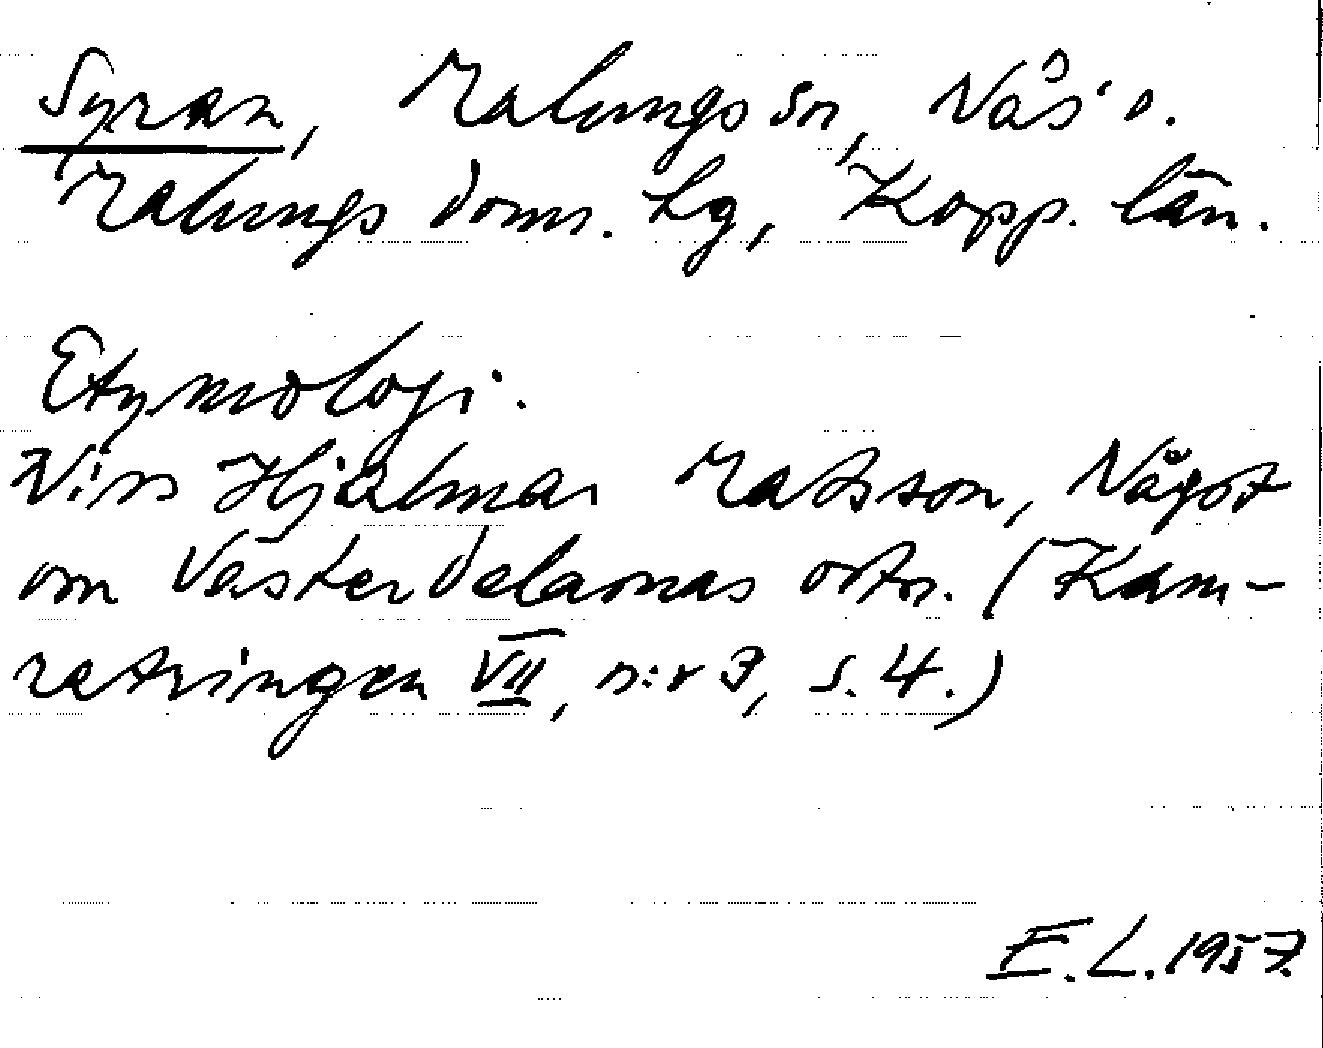 Syran, Malungs sn, Nås o.
Malungs doms. hg, Kopp. län.
Etymologi.
Hjalmar Matsson, Något
om Västerdalarnas ortn. (Kam-
ratringen VII, n:r 7, s. 4.)
E. L. 1957.